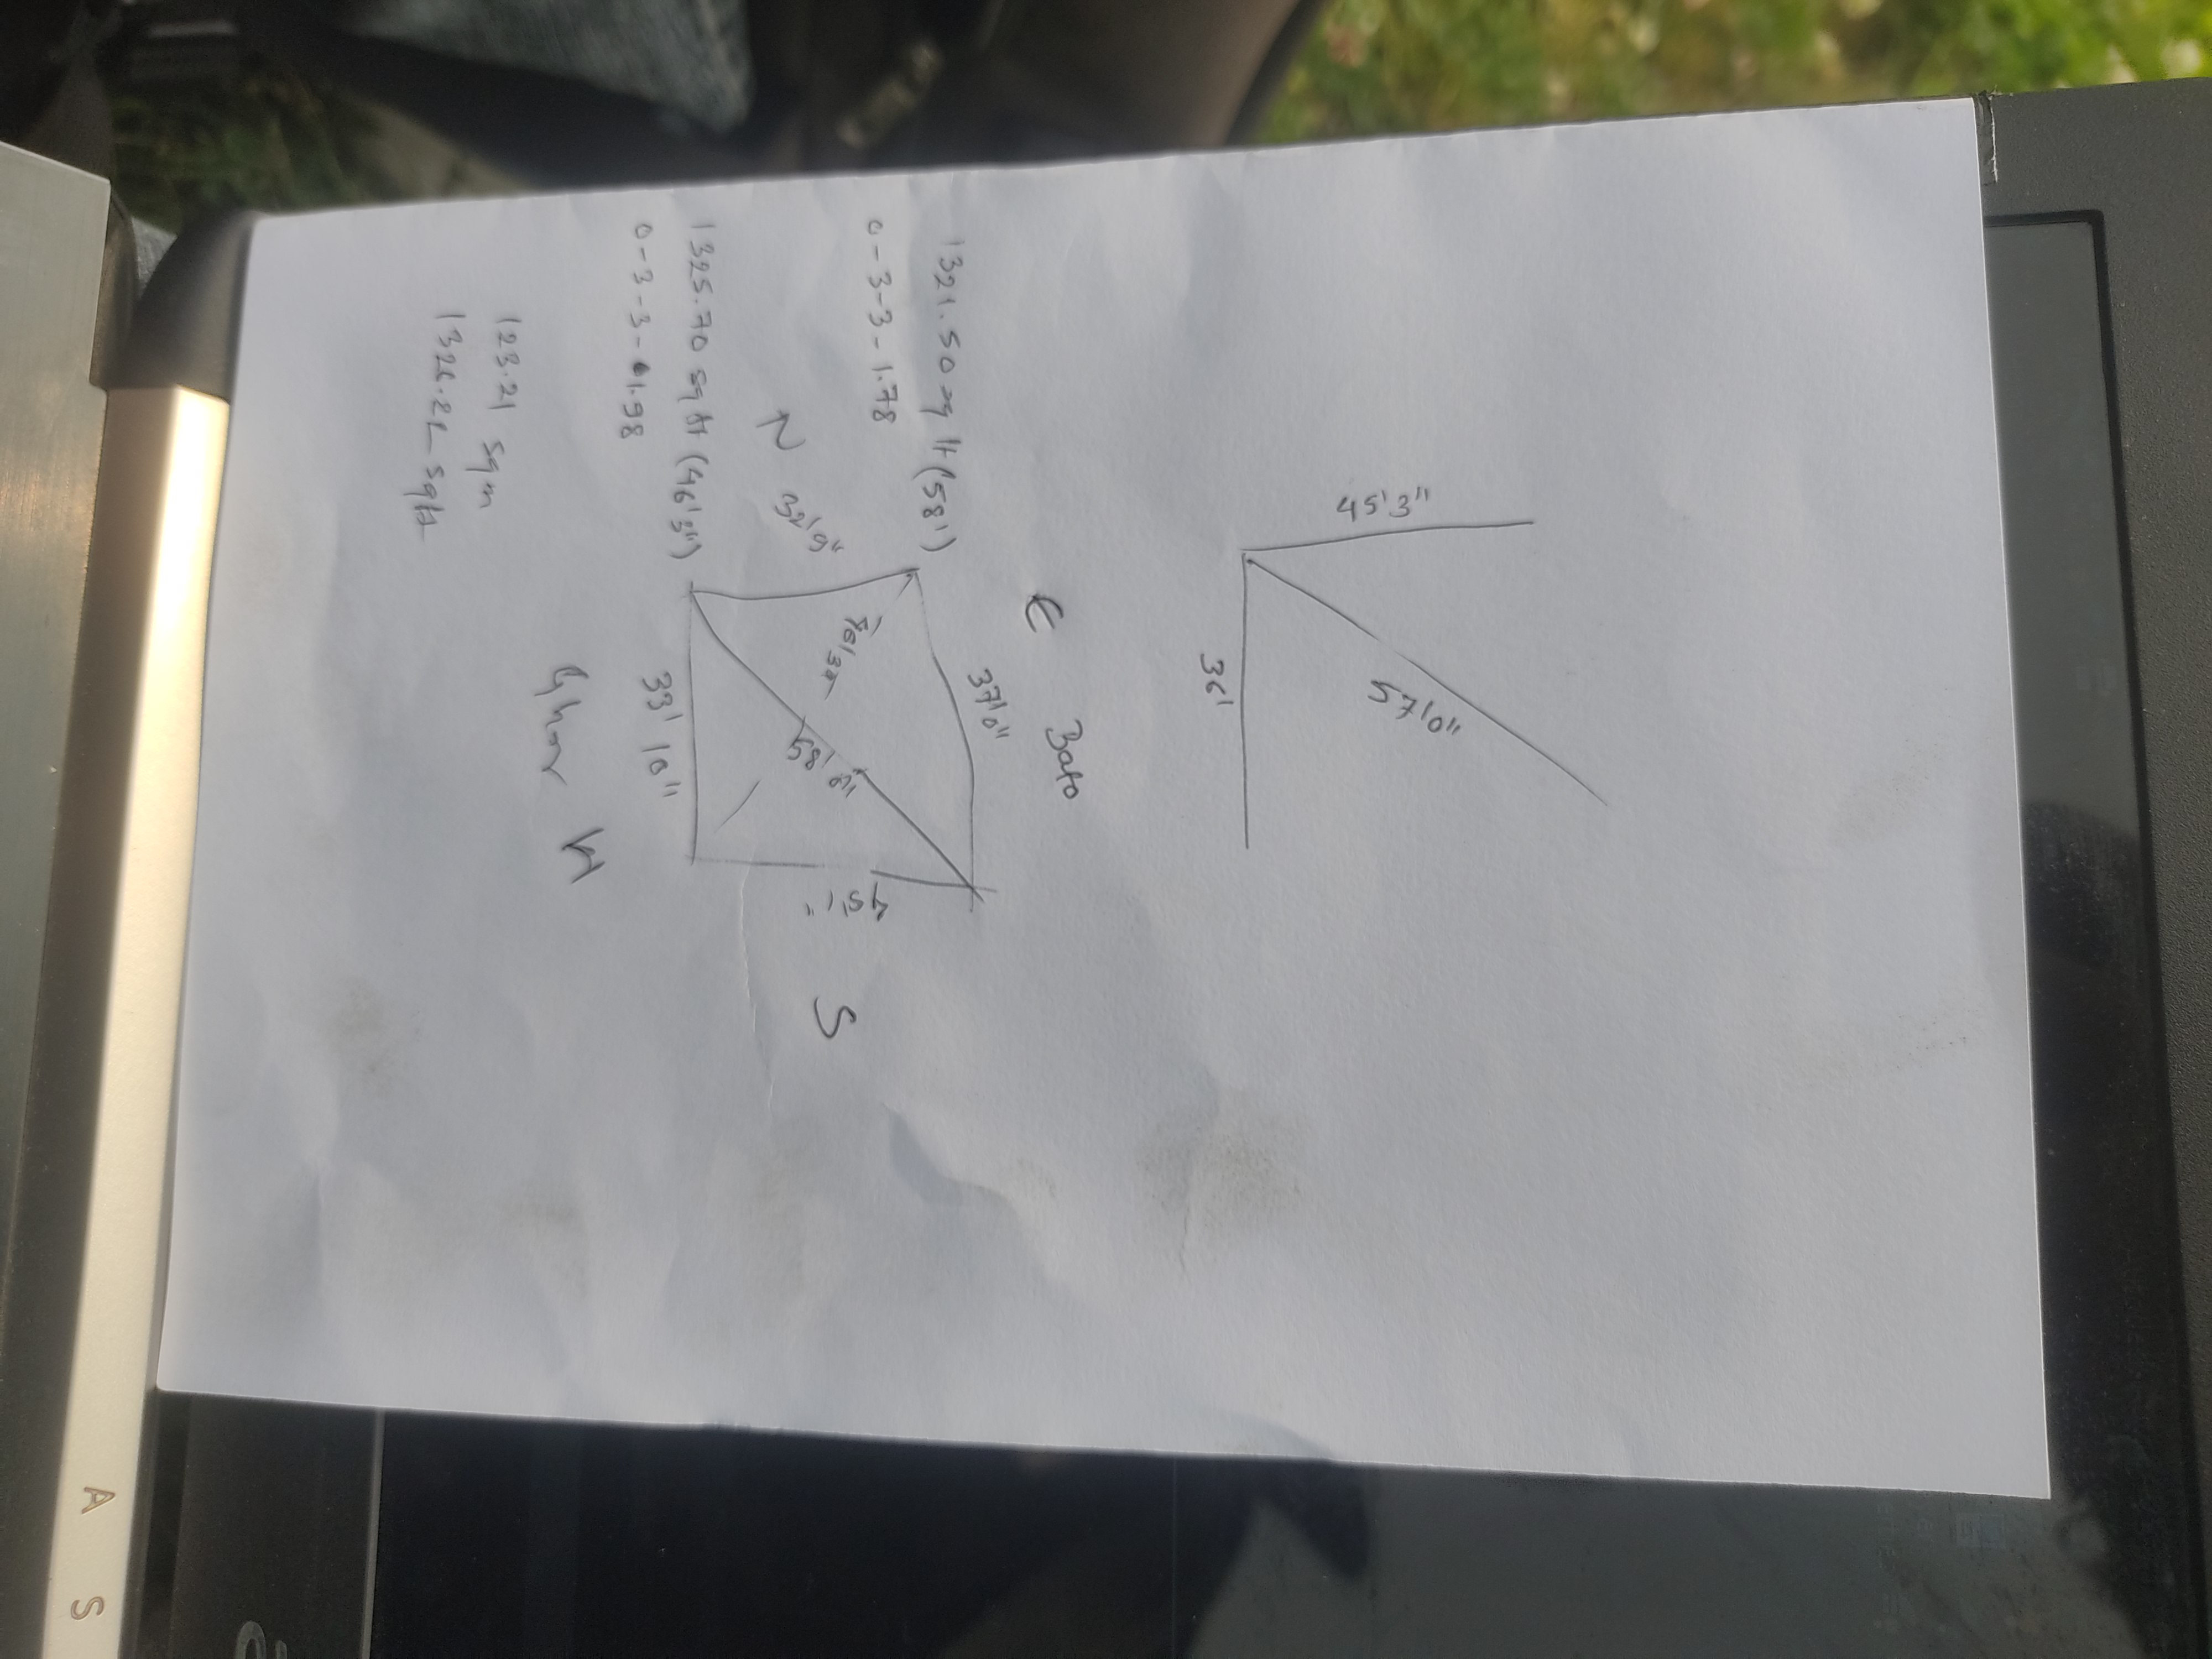 45'3"
57'0"
36'
E Bato
37'0"
1321.50 sq ft (58')
0-3-3-1.78
46'3"
58'0"
45'1"
S
N
32'9"
1325.70 sq ft (46'3")
0-3-3-1.98
33' 10"
Ghar W
123.21 sqm
1326.22 sqft
A S